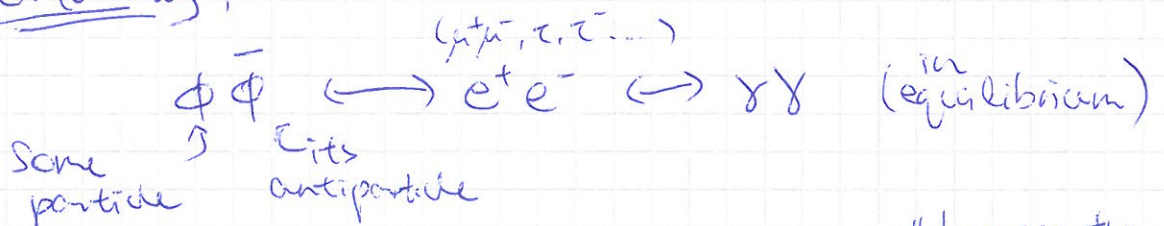 (μ⁺μ⁻, τ, τ⁻ ...)
ϕ ϕ̄ ⟷ e⁺e⁻ ⟷ γγ (in equilibrium)
Some particle
its antiparticle